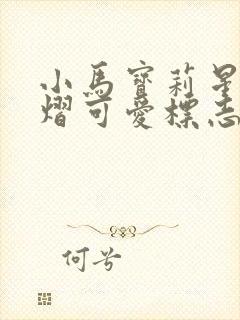 小馬寶莉星
熠可愛標志
何兮